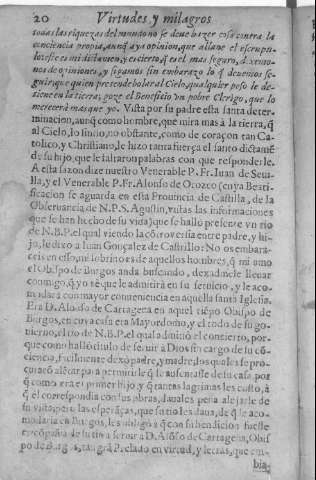 20 Virtudes, y milagros
todas las riquezas del mundo no se deue hazer cosa contra la
conciencia propia, aunq̃ aya opinion, que allane el escrupu-
lo: esse es mi dictamen, y es cierto, q̃ es el mas seguro, dexemo-
nos de opiniones, y sigamos sin embarazo lo q̃ deuemos se-
guir: que quien pretende bolar al Cielo, qualquier peso le de-
tiene en la tierra; goze el Beneficio vn pobre Clerigo, que lo
merecerà mas que yo. Vista por su padre esta santa deter-
minacion, aunq̃ como hombre, que mira mas à la tierra, q̃
al Cielo, lo sintiò, no obstante, como de coraçon tan Ca-
tolico, y Christiano, le hizo tanta fuerça el santo dictamẽ
de su hijo, que le faltaron palabras con que responderle.
A esta sazon dize nuestro Venerable P. Fr. Iuan de Seui-
lla, y el Venerable P. Fr. Alonso de Orozco (cuya Beati-
ficacion se aguarda en esta Prouincia de Castilla, de la
Obseruancia de N. P. S. Agustin, vistas las informaciones
que se han hecho de su vida) que se hallò presente vn tio
de N. B. P. el qual viendo la cõtrouersia entre padre, y hi-
jo, le dixo a Iuan Gonçalez de Castrillo: No os embara-
ceis en esso, mi sobrino es de aquellos hombres, q̃ mi amo
el Obispo de Burgos anda buscando, dexadmele lleuar
conmigo, q̃ yo sè que le admitirà en su seruicio, y le aco-
modarà con mayor conueniencia en aquella santa Iglesia.
Era D. Alonso de Cartagena en aquel tiẽpo Obispo de
Burgos, en cuya casa era Mayordomo, y el todo de su go-
uierno, el tio de N. B. P. el qual admitiò el concierto, por-
que como hallò titulo de seruir à Dios sin cargo de su cõ-
ciencia, facilmente dexò padre, y madre, dos quales se pro-
curarõ
q̃ como era el primer hijo, y q̃ tantas lagrimas les costò, à
q̃ el correspondia con sus obras, dauales pena alejarle de
su vista; pero las esperãças, que su tio les daua, de q̃ le aco-
modaria en Burgos, les obligò à que con su bendicion fuesse
en cõpañia de su tio à seruir à D. Alõso de Cartagena, Obis-
po de Burgos, tan grã Prelado en virtud, y letras, que em-
bia-